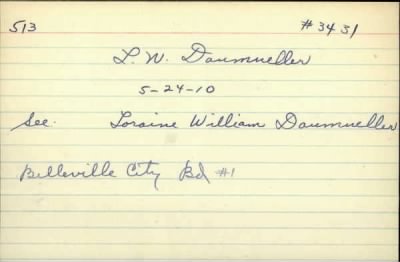 513 #3431
L. W. Daumueller
5-24-10
See. Loraine William Daumueller
Belleville City Bd #1